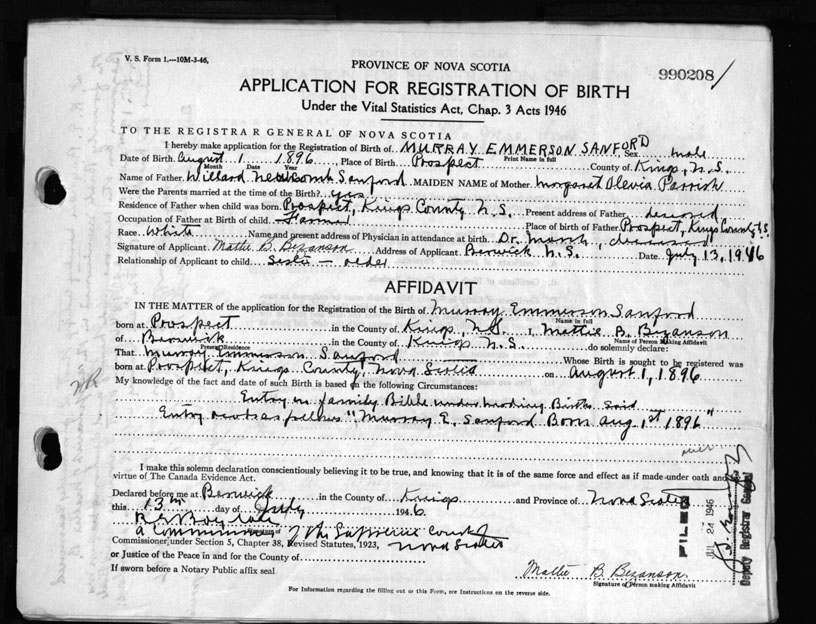 V. S. Form 1.—10M-3-46,
PROVINCE OF NOVA SCOTIA
990208/
APPLICATION FOR REGISTRATION OF BIRTH
Under the Vital Statistics Act, Chap. 3 Acts 1946
TO THE REGISTRAR GENERAL OF NOVA SCOTIA
I hereby make application for the Registration of Birth of MURRAY EMMERSON SANFORD Sex male
Print Name in full
Date of Birth August 1 1896, Place of Birth Prospect County of Kings, N.S.
Month Date Year
Name of Father Willard Sanford MAIDEN NAME of Mother Margaret Olevia Parrish
Were the Parents married at the time of the Birth? yes
Residence of Father when child was born Prospect, Kings County N.S. Present address of Father deceased
Occupation of Father at Birth of child Farmer Place of birth of Father Prospect, Kings County N.S.
Race White Name and present address of Physician in attendance at birth Dr. , deceased
Signature of Applicant Mattie B. Bezanson Address of Applicant Berwick N.S. Date July 13, 1946
Relationship of Applicant to child Sister — older
AFFIDAVIT
IN THE MATTER of the application for the Registration of the Birth of Murray Emmerson Sanford
Name in full
born at Prospect in the County of Kings, N.S. I, Mattie B. Bezanson
Name of Person Making Affidavit
of Berwick in the County of Kings N.S. do solemnly declare:
Present Residence
That Murray Emmerson Sanford Whose Birth is sought to be registered was
born at Prospect, Kings County, Nova Scotia on August 1, 1896
My knowledge of the fact and date of such Birth is based on the following Circumstances:
Entry in family Bible under heading Births said
Entry reads as follows "Murray E. Sanford Born Aug 1st 1896"
I make this solemn declaration conscientiously believing it to be true, and knowing that it is of the same force and effect as if made under oath and by
virtue of The Canada Evidence Act.
Declared before me at Berwick in the County of Kings and Province of Nova Scotia
this 13th day of July 1946
A Commissioner of the Supreme Court
Commissioner under Section 5, Chapter 38, Revised Statutes, 1923, Nova Scotia
or Justice of the Peace in and for the County of
If sworn before a Notary Public affix seal
Mattie B. Bezanson
Signature of Person making Affidavit
For Information regarding the filling out of this Form, see Instructions on the reverse side.
FILED
JUL 24 1946
Deputy Registrar General